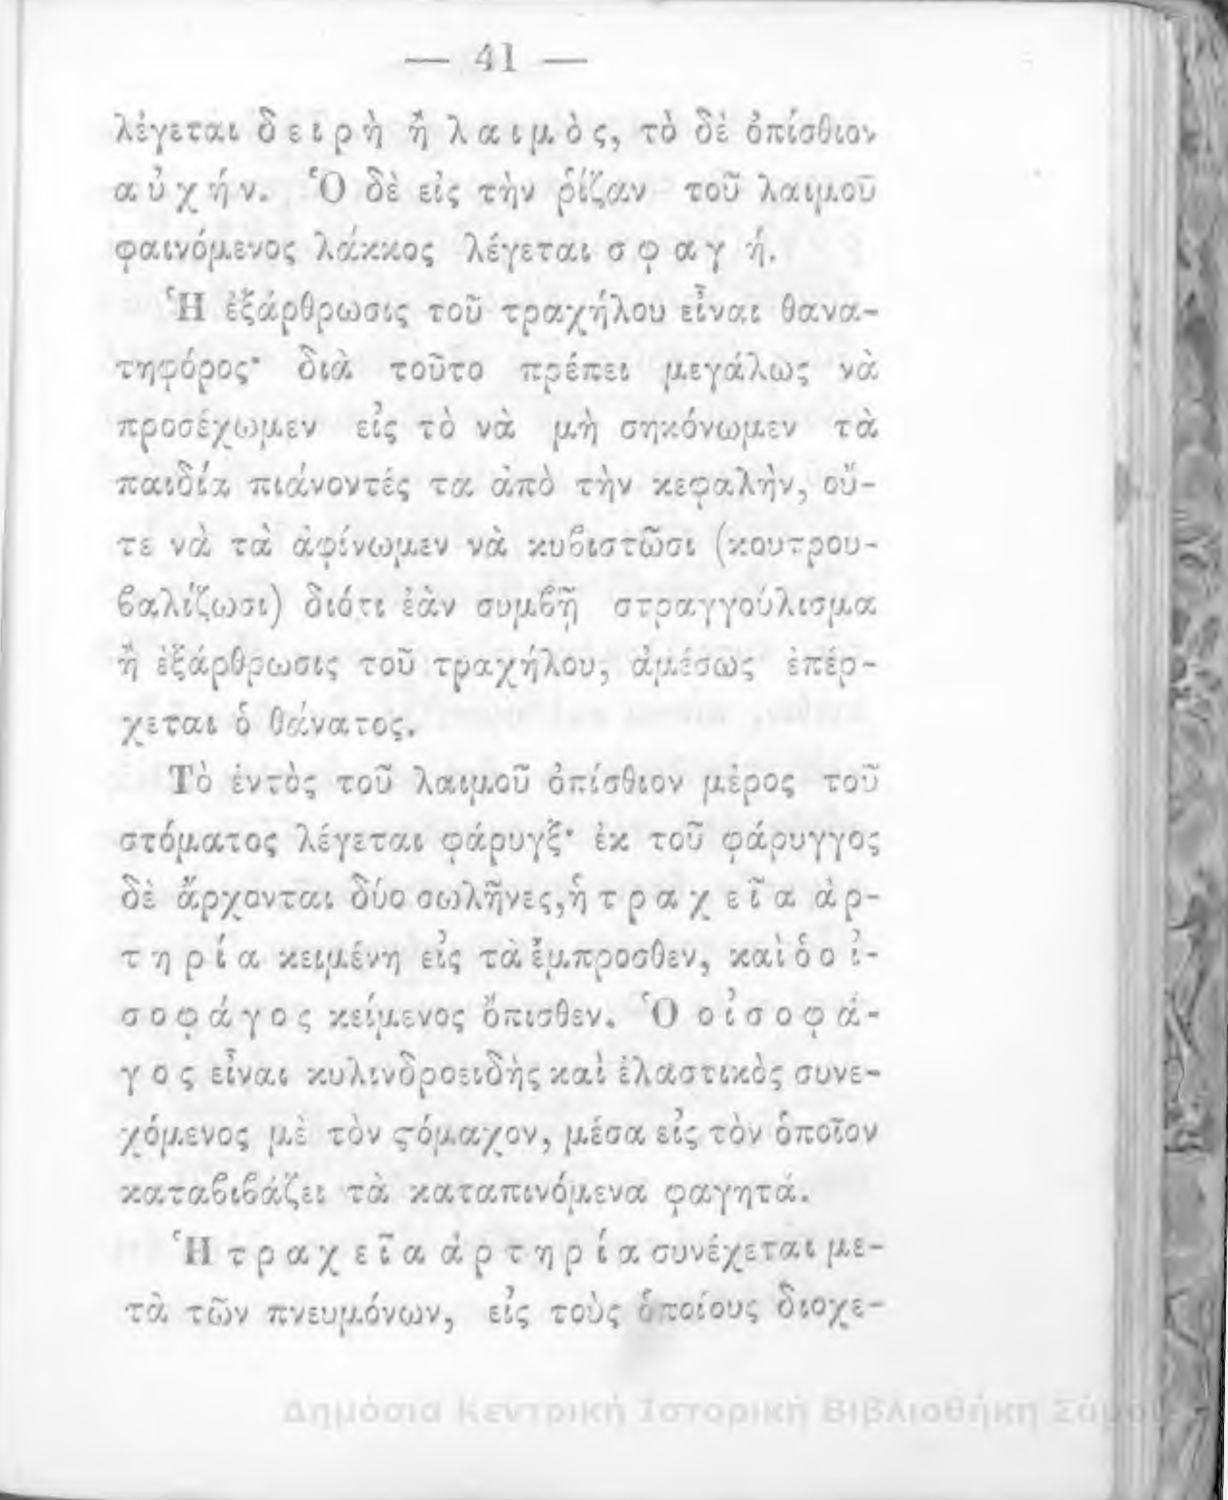 — 41 —
λέγεται δειρὴ ἢ λαιμὸς, τὸ δὲ ὀπίσθιον
αὐχήν. Ὁ δὲ εἰς τὴν ῥίζαν τοῦ λαιμοῦ
φαινόμενος λάκκος λέγεται σφαγή.
Ἡ ἐξάρθρωσις τοῦ τραχήλου εἶναι θανα-
τηφόρος· διὰ τοῦτο πρέπει μεγάλως νὰ
προσέχωμεν εἰς τὸ νὰ μὴ σηκόνωμεν τὰ
παιδία πιάνοντές τα ἀπὸ τὴν κεφαλὴν, οὔ-
τε νὰ τὰ ἀφίνωμεν νὰ κυβιστῶσι (κουτρου-
βαλίζωσι) διότι ἐὰν συμβῇ στραγγούλισμα
ἢ ἐξάρθρωσις τοῦ τραχήλου, ἀμέσως ἐπέρ-
χεται ὁ θάνατος.
Τὸ ἐντὸς τοῦ λαιμοῦ ὀπίσθιον μέρος τοῦ
στόματος λέγεται φάρυγξ· ἐκ τοῦ φάρυγγος
δὲ ἄρχονται δύο σωλῆνες, ἡ τραχεῖα ἀρ-
τηρία κειμένη εἰς τὰ ἔμπροσθεν, καὶ ὁ οἰ-
σοφάγος κείμενος ὄπισθεν. Ὁ οἰσοφά-
γος εἶναι κυλινδροειδὴς καὶ ἐλαστικὸς συνε-
χόμενος μὲ τὸν ϛόμαχον, μέσα εἰς τὸν ὁποῖον
καταβιβάζει τὰ καταπινόμενα φαγητά.
Ἡ τραχεῖα ἀρτηρία συνέχεται με-
τὰ τῶν πνευμόνων, εἰς τοὺς ὁποίους διοχε-
Δημόσια Κεντρική Ιστορική Βιβλιοθήκη Σάμου